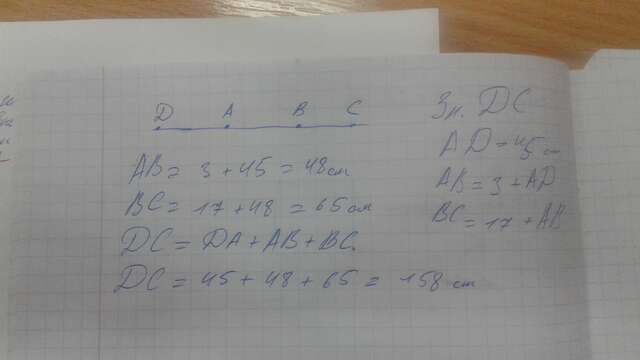 D A B C
AB = 3 + 45 = 48 см
BC = 17 + 48 = 65 см
DC = DA + AB + BC.
DC = 45 + 48 + 65 = 158 см
Зн. DC
AD = 45 см
AB = 3 + AD
BC = 17 + AB